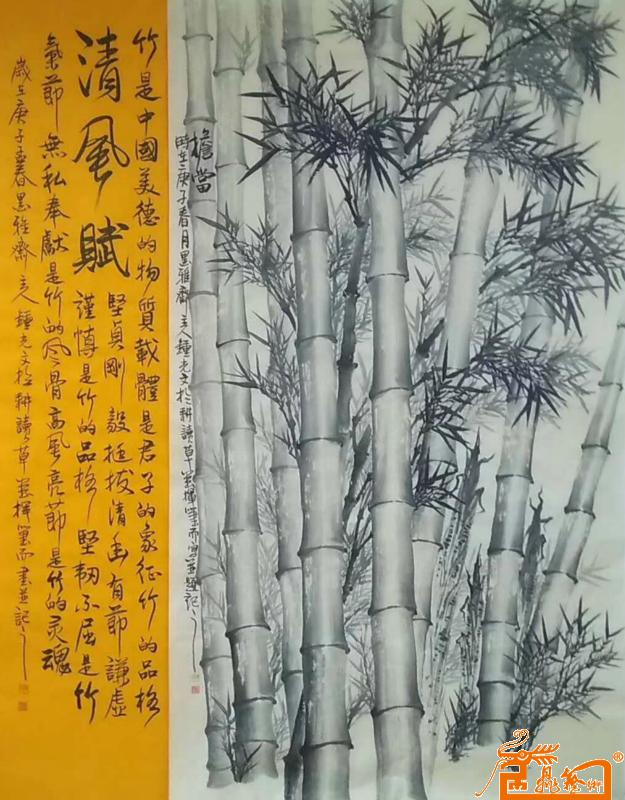 竹是中國美德的物質載體是君子的象征竹的品格
清風賦
堅貞剛毅挺拔清幽有節謙虛
謹慎是竹的品格堅韧不屈是竹
氣節無私奉獻是竹的风骨高風亮節是竹的灵魂
歲在庚子春墨雅齋主人鍾光文於耕讀草堂揮筆而書並記
擔當
時在庚子春月墨雅齋主人鍾光文於耕讀草堂揮筆而寫並題記